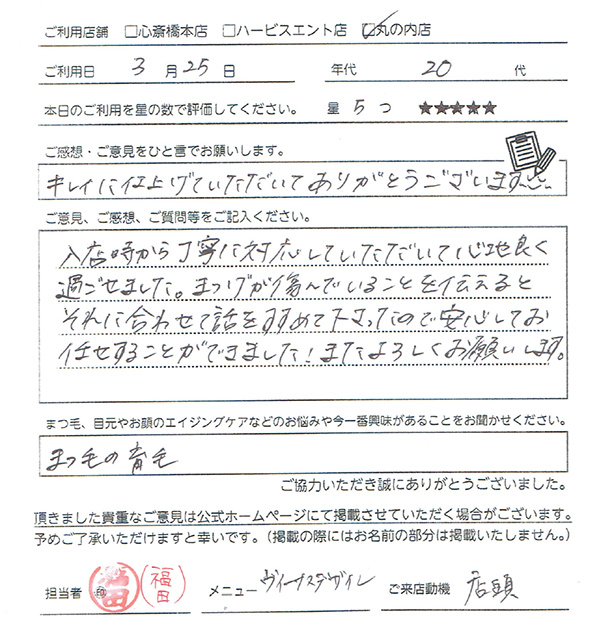 ご利用店舗 □心斎橋本店 □ハービスエント店 ☑丸の内店
ご利用日 3 月 25 日 年代 20 代
本日のご利用を星の数で評価してください。 星 5 つ ★★★★★
ご感想・ご意見をひと言でお願いします。
キレイに仕上げていただいてありがとうございます
ご意見、ご感想、ご質問等をご記入ください。
入店時から丁寧に対応していただいて心地良く
過ごせました。まつげが傷んでいることを伝えると
それに合わせて話をすすめて下さったので安心してお
任せすることができました!またよろしくお願いします。
まつ毛、目元やお顔のエイジングケアなどのお悩みや今一番興味があることをお聞かせください。
まつ毛の育毛
ご協力いただき誠にありがとうございました。
頂きました貴重なご意見は公式ホームページにて掲載させていただく場合がございます。
予めご了承いただけますと幸いです。(掲載の際にはお名前の部分は掲載いたしません。)
担当者 印 福田 (福田) メニュー ヴィーナスデザイン ご来店動機 店頭